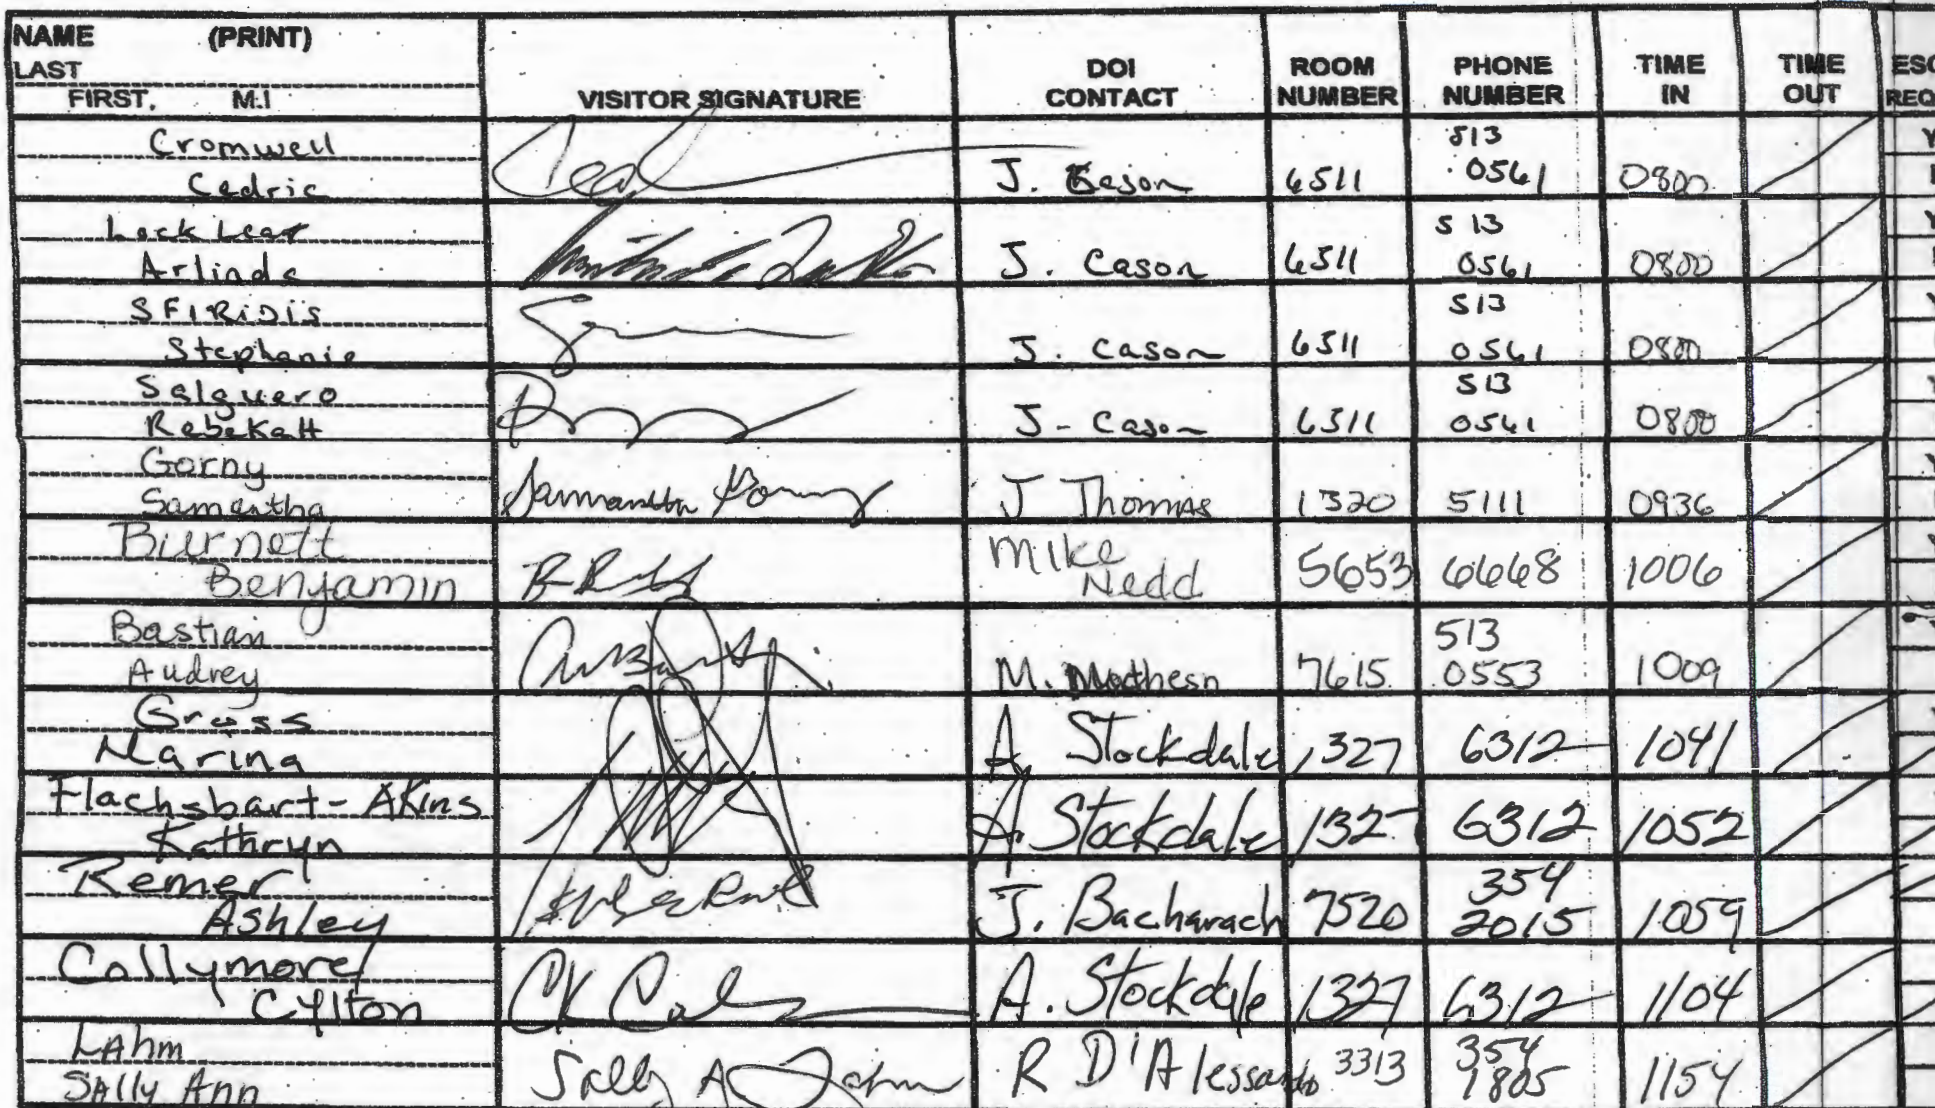 NAME (PRINT)
LAST
FIRST, M.I
VISITOR SIGNATURE
DOI CONTACT
ROOM NUMBER
PHONE NUMBER
TIME IN
TIME OUT
ESC
REQ
Cromwell
Cedric J. Cason 6511 513 0561 0800
Locklear
Arlinda J. Cason 6511 513 0561 0800
SFIRIDIS
Stephanie J. Cason 6511 513 0561 0800
Salguero
RebekaH J- Cason 6511 513 0561 0800
Gorny
Samantha Samantha Gorny J Thomas 1320 5111 0936
Burnett
Benjamin Mike Nedd 5653 6668 1006
Bastian
Audrey M. Mathesn 7615 513 0553 1009
Gross
Marina A. Stockdale 1327 6312 1041
Flachsbart-Akins
Kathryn A. Stockdale 132 6312 1052
Remer
Ashley J. Bacharach 7520 354 2015 1059
Collymore
Cylton A. Stockdale 1327 6312 1104
LAhm
SAlly Ann Sally A Lahm R D'Alessandro 3313 354 1805 1154